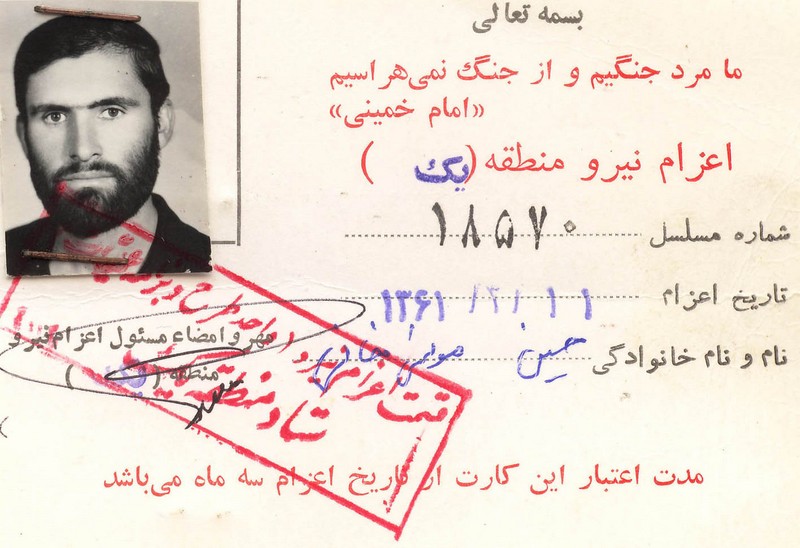 بسمه تعالی
ما مرد جنگیم و از جنگ نمی‌هراسیم
«امام خمینی»
اعزام نیرو منطقه (یک)
شماره مسلسل ۱۸۵۷۰
تاریخ اعزام ۱۳۶۱/۲/۱۱
نام و نام خانوادگی حسین
مهر و امضاء مسئول اعزام نیرو
منطقه (یک)
ستاد منطقه
مدت اعتبار این کارت از تاریخ اعزام سه ماه می‌باشد